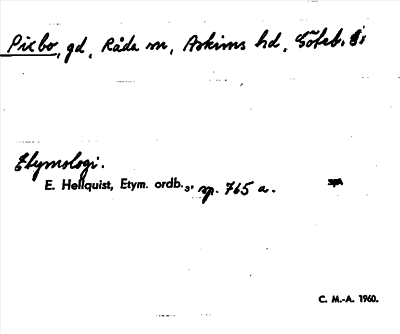 Pixbo, gd, Råda sn, Askims hd, Göteb.
Etymologi.
E. Hellquist, Etym. ordb.₃, sp. 765 a.
C. M.-A. 1960.